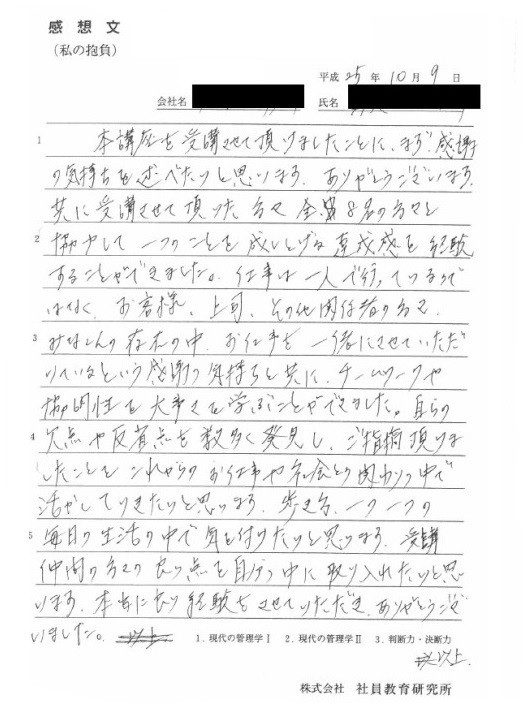 感想文
(私の抱負)
平成 25 年 10 月 9 日
会社名 氏名
1 本講座を受講させて頂けましたことに、まず感謝
の気持ちを述べたいと思います。ありがとうございます。
共に受講させて頂いた方々 全員8名の方々と
2 協力して一つのことを成しとげる達成感を経験
することができました。仕事は一人で行っているので
はなく、お客様、上司、その他関係者の方々、
3 みなさんの存在の中、お仕事を一緒にさせていただ
いているという感謝の気持ちと共に、チームワークや
協調性を大事さを学ぶことができました。自らの
4 欠点や反省点を数多く発見し、ご指摘頂けま
したことをこれからのお仕事や社会との関わりの中で
活かしていきたいと思います。歩き方、一つ一つの
5 毎日の生活の中で気を付けたいと思います。受講
仲間の方々の良い点を自分の中に取り入れたいと思
います。本当に良い経験をさせていただき、ありがとうござ
いました。 以上 1. 現代の管理学Ⅰ 2. 現代の管理学Ⅱ 3. 判断力・決断力
以上
株式会社 社員教育研究所